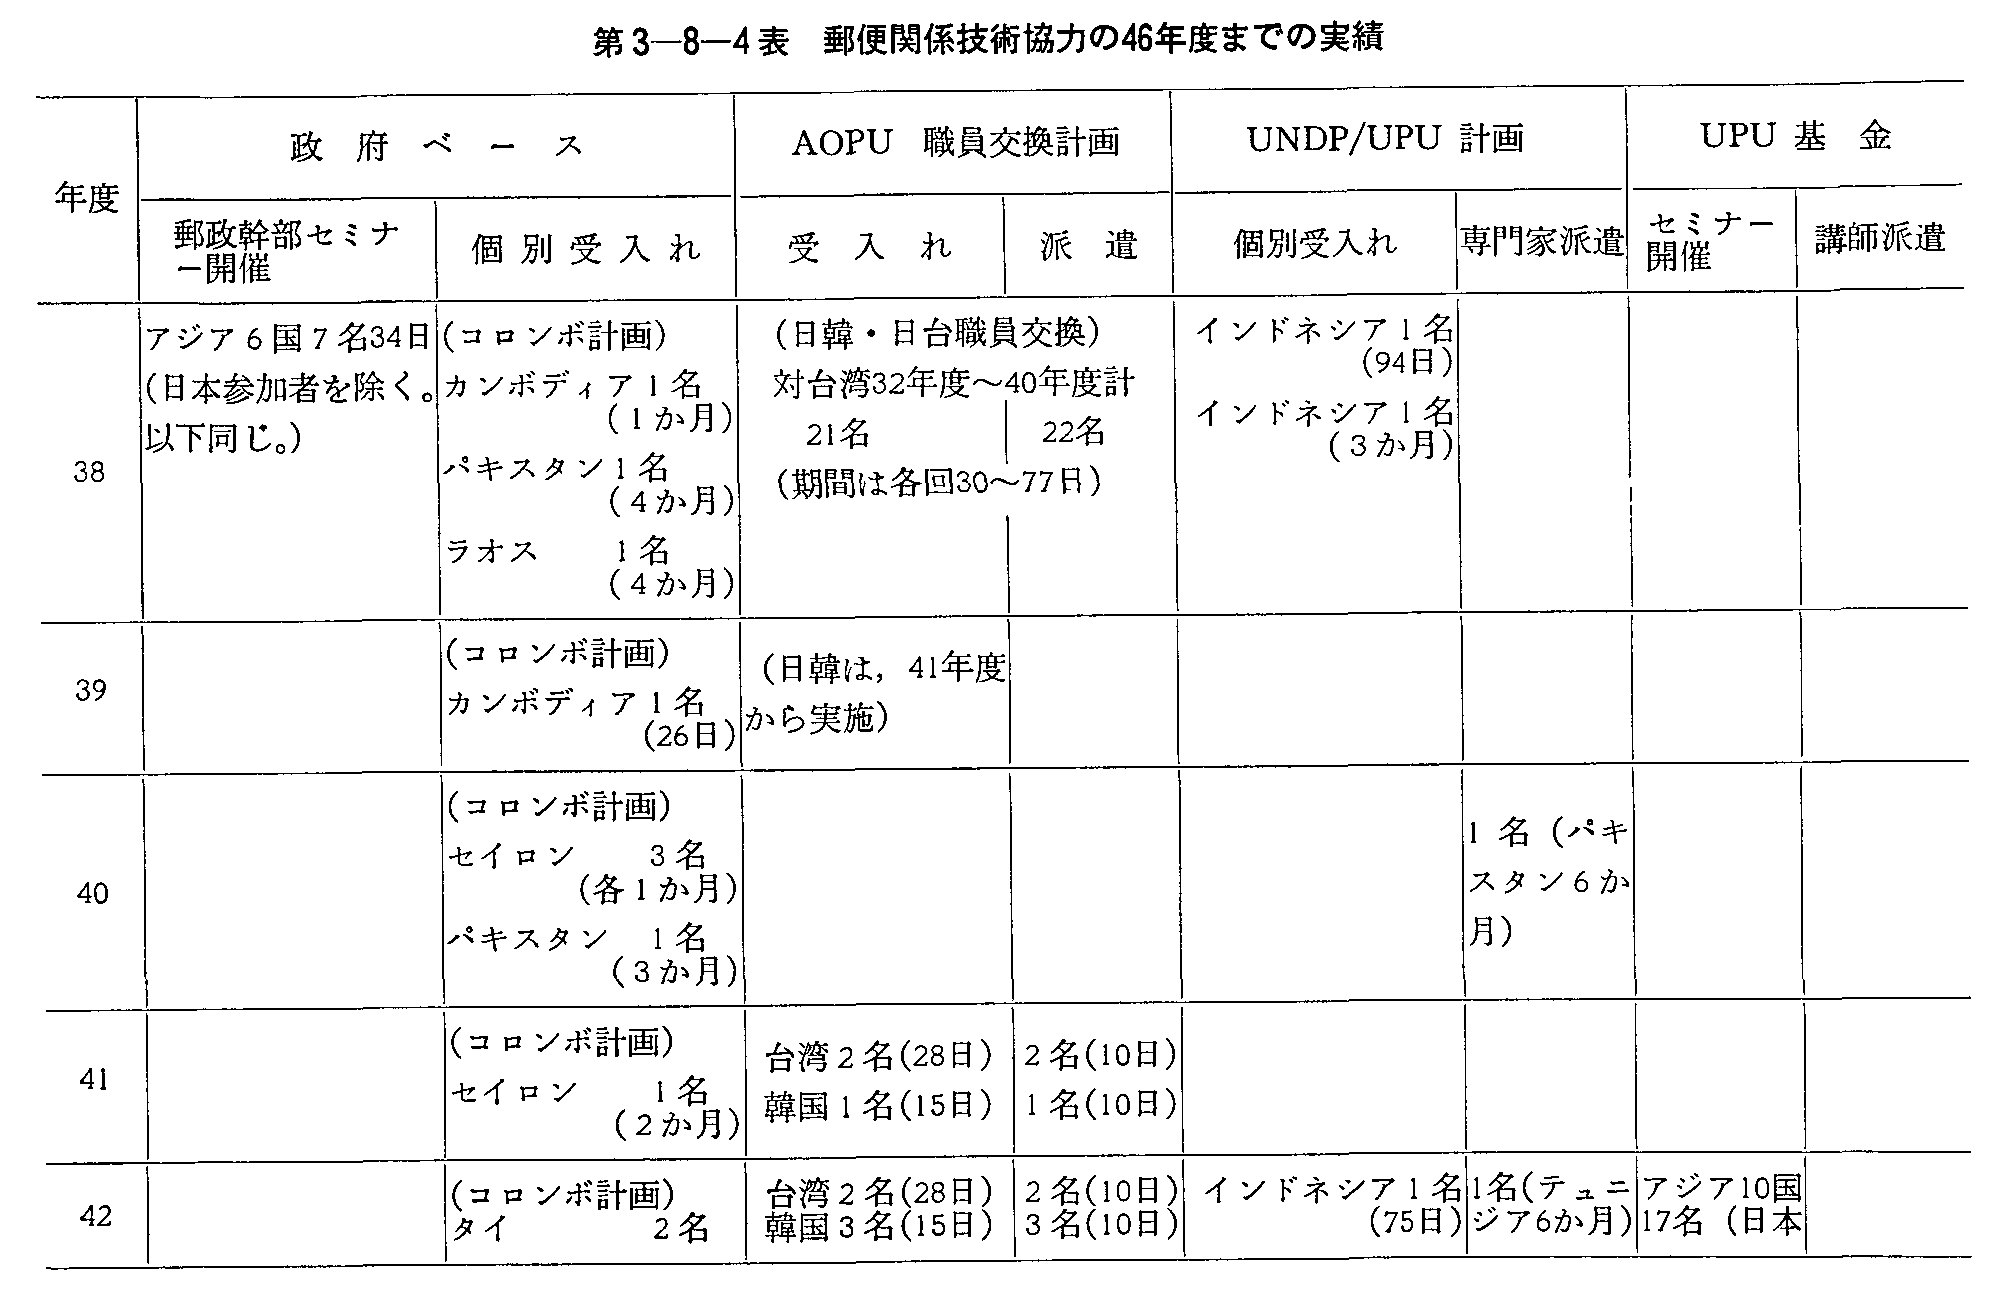 第3－8－4表　郵便関係技術協力の46年度までの実績
年度
政府ベース
AOPU 職員交換計画
UNDP/UPU 計画
UPU 基金
郵政幹部セミナ
ー開催
個別受入れ
受入れ
派遣
個別受入れ
専門家派遣
セミナー
開催
講師派遣
38
アジア6国7名34日
(日本参加者を除く。
以下同じ。)
(コロンボ計画)
カンボディア1名
(1か月)
パキスタン1名
(4か月)
ラオス　1名
(4か月)
(日韓・日台職員交換)
対台湾32年度～40年度計
21名
22名
(期間は各回30～77日)
インドネシア1名
(94日)
インドネシア1名
(3か月)
39
(コロンボ計画)
カンボディア1名
(26日)
(日韓は，41年度
から実施)
40
(コロンボ計画)
セイロン　3名
(各1か月)
パキスタン　1名
(3か月)
1名(パキ
スタン6か
月)
41
(コロンボ計画)
セイロン　1名
(2か月)
台湾2名(28日)
韓国1名(15日)
2名(10日)
1名(10日)
42
(コロンボ計画)
タイ　2名
台湾2名(28日)
韓国3名(15日)
2名(10日)
3名(10日)
インドネシア1名
(75日)
1名(テュニ
ジア6か月)
アジア10国
17名 (日本